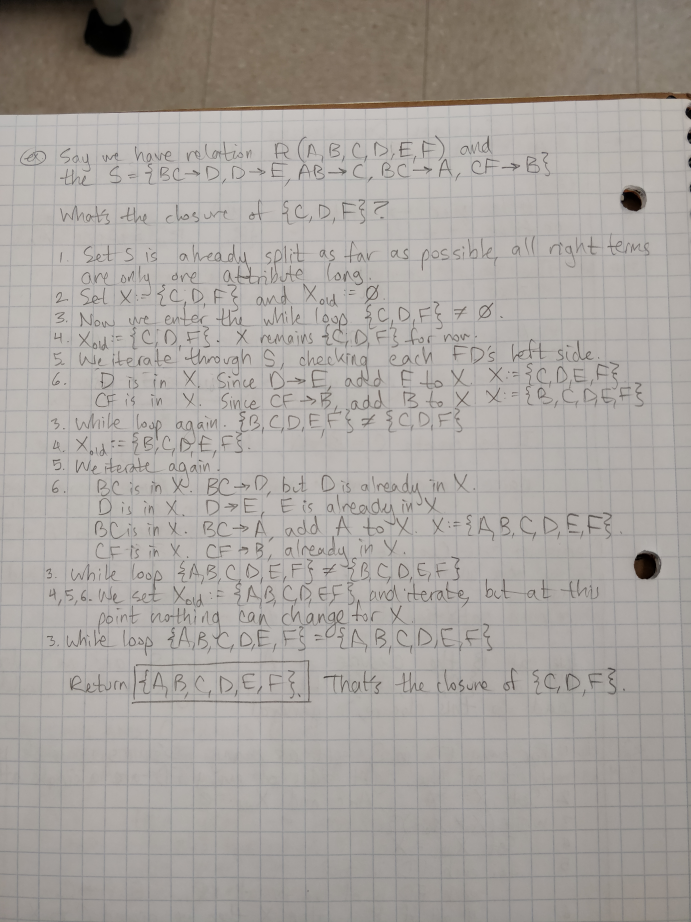 ex Say we have relation R(A,B,C,D,E,F) and
the S = {BC→D, D→E, AB→C, BC→A, CF→B}
What's the closure of {C,D,F}?
1. Set S is already split as far as possible, all right terms
are only one attribute long.
2. Set X:={C,D,F} and Xold := ∅.
3. Now we enter the while loop {C,D,F} ≠ ∅.
4. Xold:={C,D,F}. X remains {C,D,F} for now.
5. We iterate through S, checking each FD's left side.
6. D is in X. Since D→E, add E to X. X:={C,D,E,F}
CF is in X. Since CF→B, add B to X X:={B,C,D,E,F}
3. While loop again. {B,C,D,E,F} ≠ {C,D,F}
4. Xold:={B,C,D,E,F}.
5. We iterate again.
6. BC is in X. BC→D, but D is already in X.
D is in X. D→E, E is already in X
BC is in X. BC→A, add A to X. X:={A,B,C,D,E,F}.
CF is in X. CF→B, already in X.
3. While loop {A,B,C,D,E,F} ≠ {B,C,D,E,F}
4,5,6. We set Xold := {A,B,C,D,E,F}, and iterate, but at this
point nothing can change for X.
3. While loop {A,B,C,D,E,F} = {A,B,C,D,E,F}
Return {A,B,C,D,E,F}. That's the closure of {C,D,F}.